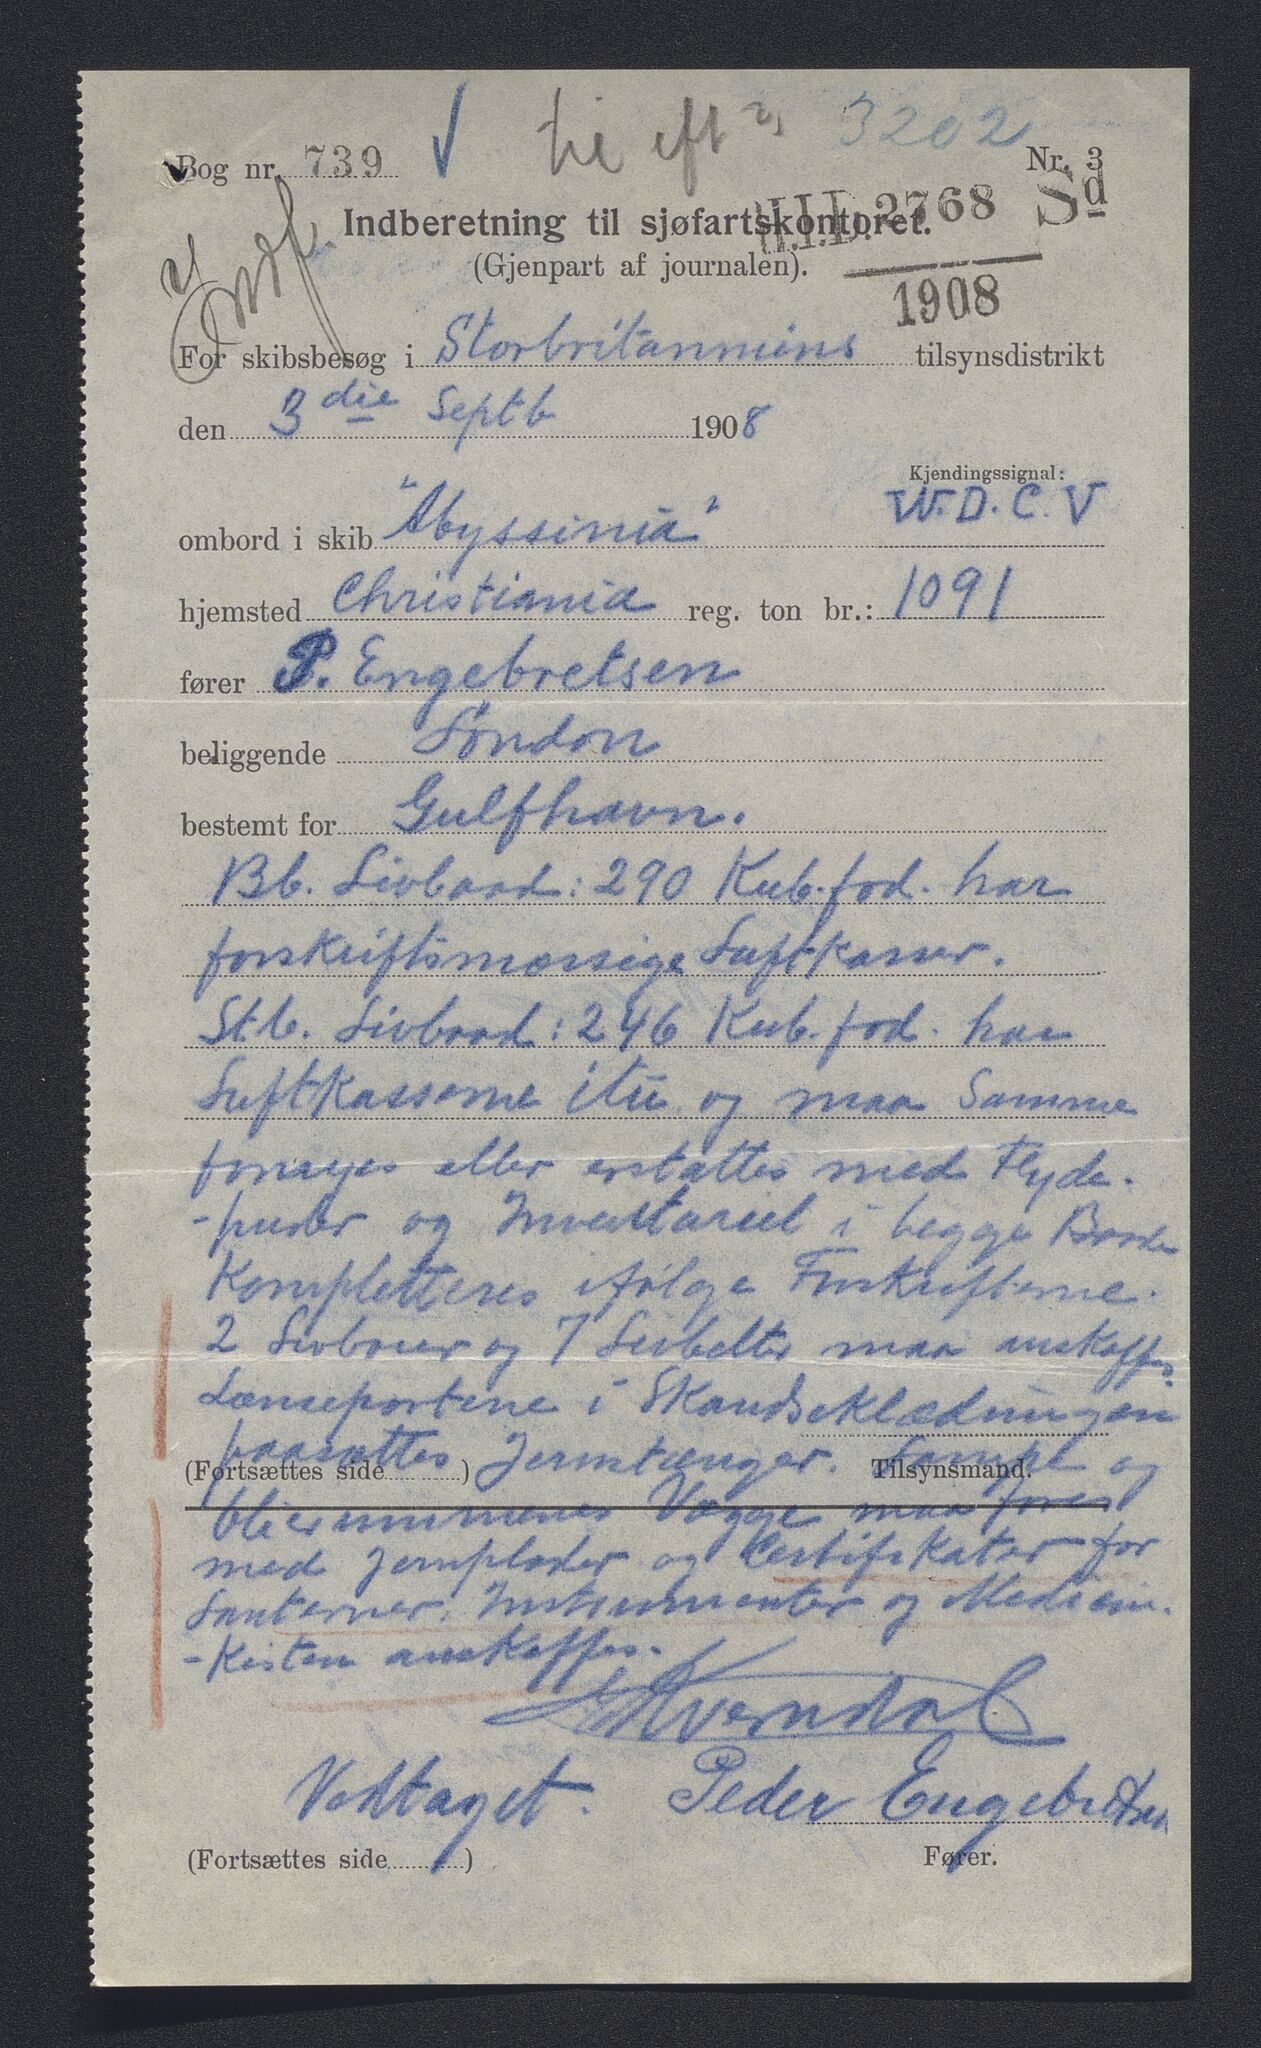 Bog nr. 739
3202
Nr. 3
2768 Sd
Indberetning til sjøfartskontoret.
(Gjenpart af journalen).
1908
For skibsbesøg i Storbritanniens tilsynsdistrikt
den 3die Septb 1908
Kjendingssignal:
ombord i skib "Abyssinia" W.D.C.V
hjemsted Christiania reg. ton br.: 1091
fører P. Engebretsen
beliggende London
bestemt for Gulfhavn.
Bb. Livbaad: 290 Kub.fod. har
forskriftsmæssige Luftkasser.
Stb. Livbaad: 246 Kub.fod. har
Luftkasserne itu og maa Samme
fornyes eller erstattes med Flyde-
-puder og Inventariet i begge Baade
Kompletteres ifølge Forskrifterne.
2 Livbøier og 7 Livbelter maa anskaffes.
Lænseportene i Skandseklædningen
paasættes Jernstænger. Lampe og
(Fortsættes side ) Tilsynsmand.
Vægge maa fores
med Jernplader og Certifikater for
Lanterner, Instrumenter og Medicin-
-Kisten anskaffes.
Vedtaget. Peder Engebretsen
(Fortsættes side ) Fører.